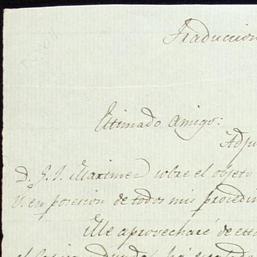 Traduccion
Estimado Amigo:
Adju
D. J. J. Martinez sobre el objeto
V. en posecion de todos mis procedim
Me aprovecharé de est